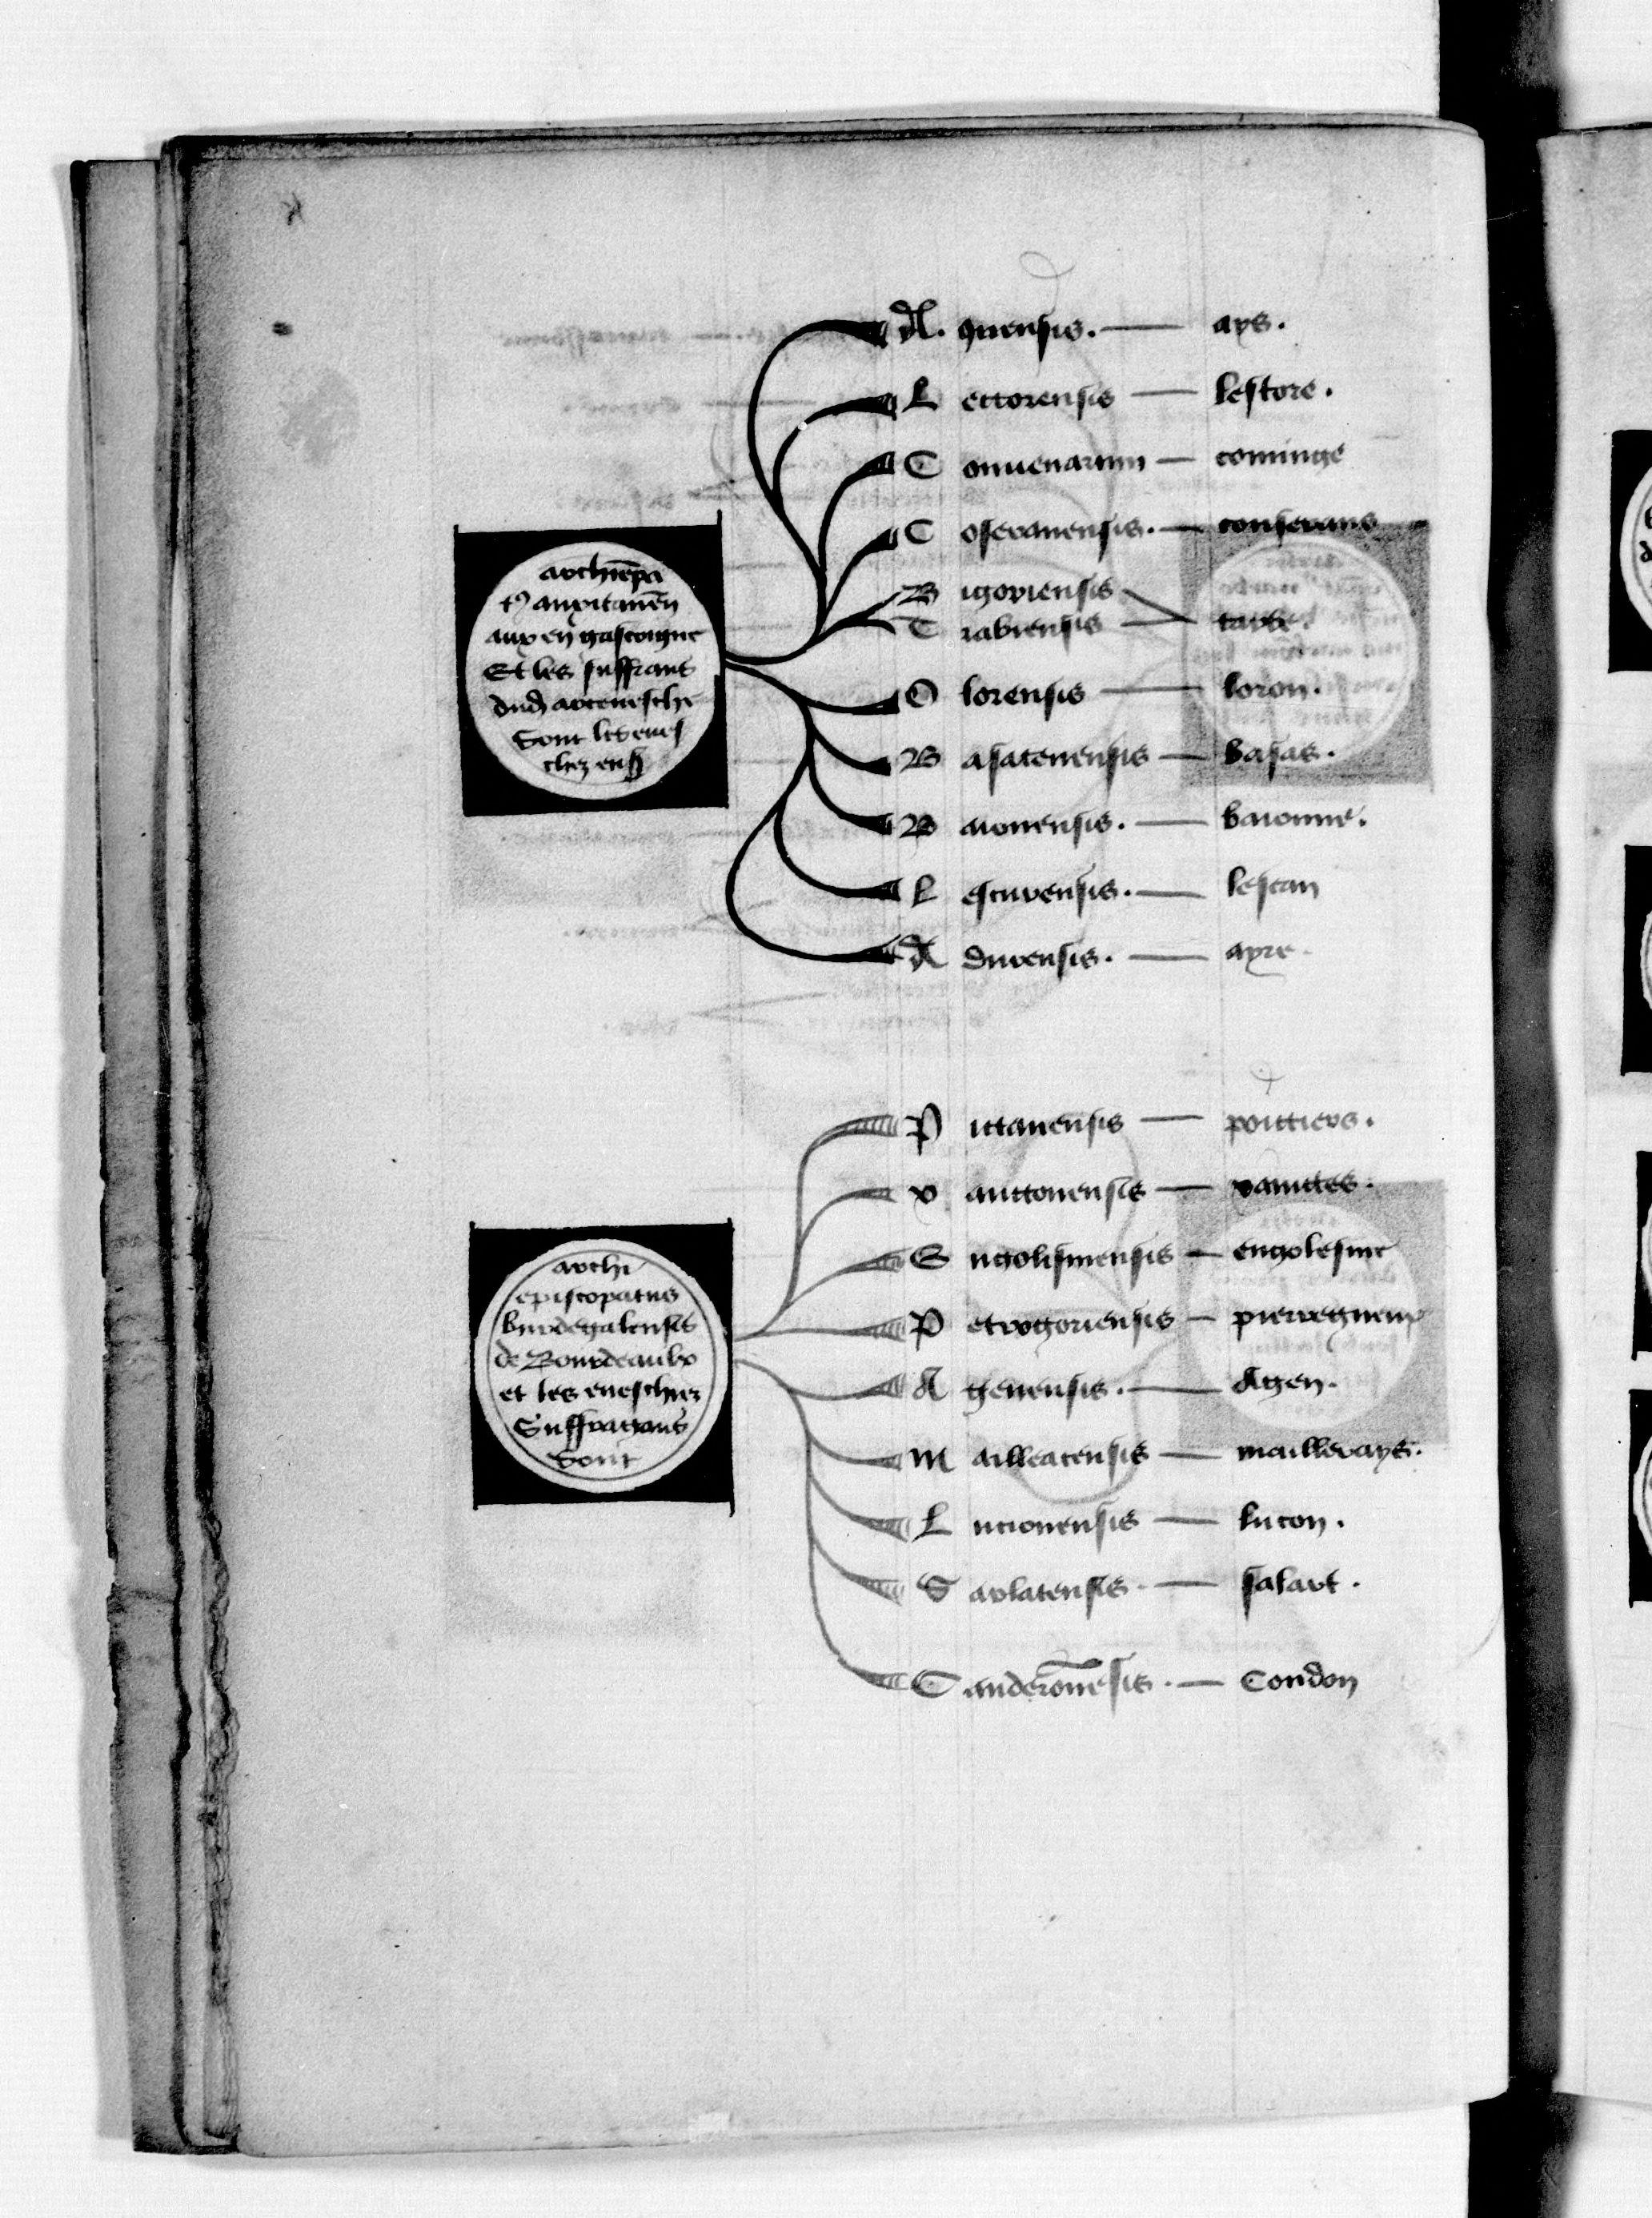 archiepa
t9 auxitanen
aux en gascoigne
Et les suffrans
dud arceuesche
Sont les eues
chez ens
A. quensis. — ays.
L ectorensis — lestore.
C onuenarum — cominge
C oseranensis. — conserans
B igoriensis
T rabiensis — tarbe.
O lorensis — loron.
B asatenensis — basas.
B aionensis. — baionne.
L escurensis. — lescan
A durensis. — ayre.
archi
episcopatus
burdegalensis
de Bourdeaulx
et les eueschiez
Suffragans
Sont
P ictauensis — poictiers.
x anctonensis — xainctes.
E ngolismensis — engolesme
P etrogoriensis — pierregueux
A genensis. — Agen.
M alleacensis — maillerays.
L ucionensis — lucon.
S arlatensis. — salart.
C anderonesis. — Condon